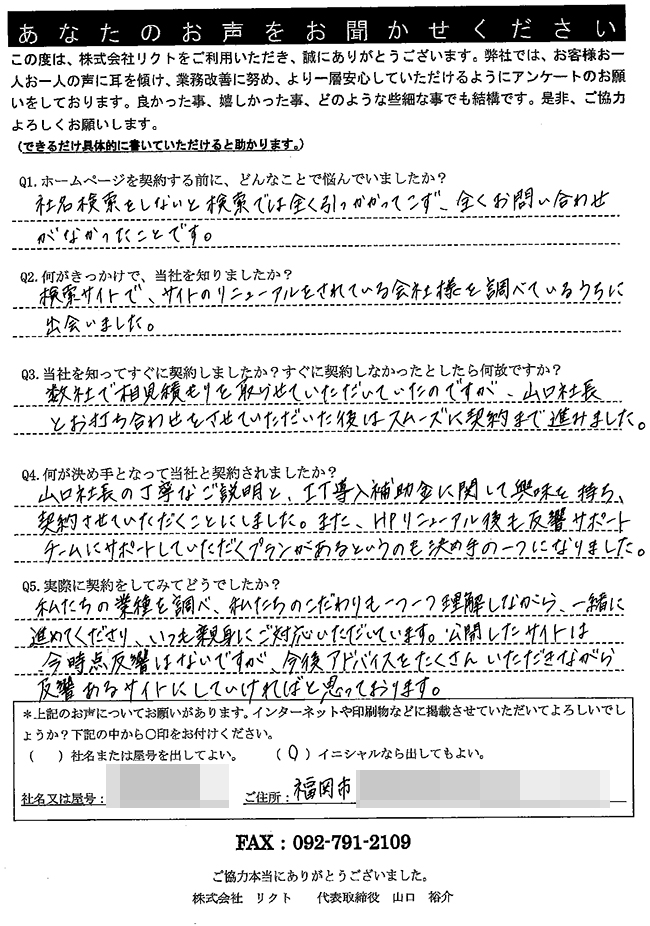 あなたのお声をお聞かせください
この度は、株式会社リクトをご利用いただき、誠にありがとうございます。弊社では、お客様お一
人お一人の声に耳を傾け、業務改善に努め、より一層安心していただけるようにアンケートのお願
いをしております。良かった事、嬉しかった事、どのような些細な事でも結構です。是非、ご協力
よろしくお願いします。
(できるだけ具体的に書いていただけると助かります。)
Q1.ホームページを契約する前に、どんなことで悩んでいましたか？
社名検索をしないと検索では全く引っかかってこず、全くお問い合わせ
がなかったことです。
Q2.何がきっかけで、当社を知りましたか？
検索サイトで、サイトのリニューアルをされている会社様を調べているうちに
出会いました。
Q3.当社を知ってすぐに契約しましたか？すぐに契約しなかったとしたら何故ですか？
数社で相見積もりを取らせていただいていたのですが、山口社長
とお打ち合わせをさせていただいた後はスムーズに契約まで進みました。
Q4.何が決め手となって当社と契約されましたか？
山口社長の丁寧なご説明と、IT導入補助金に関して興味を持ち、
契約させていただくことにしました。また、HPリニューアル後も反響サポート
チームにサポートしていただくプランがあるというのも決め手の一つになりました。
Q5.実際に契約をしてみてどうでしたか？
私たちの業種を調べ、私たちのこだわりも一つ一つ理解しながら、一緒に
進めてくださり、いつも親身にご対応いただいています。公開したサイトは
今時点反響はないですが、今後アドバイスをたくさんいただきながら
反響あるサイトにしていければと思っております。
＊上記のお声についてお願いがあります。インターネットや印刷物などに掲載させていただいてよろしいでし
ょうか？下記の中から〇印をお付けください。
(　) 社名または屋号を出してよい。　(〇) イニシャルなら出してもよい。
社名又は屋号：　ご住所：福岡市
FAX：092-791-2109
ご協力本当にありがとうございました。
株式会社　リクト　代表取締役　山口　裕介